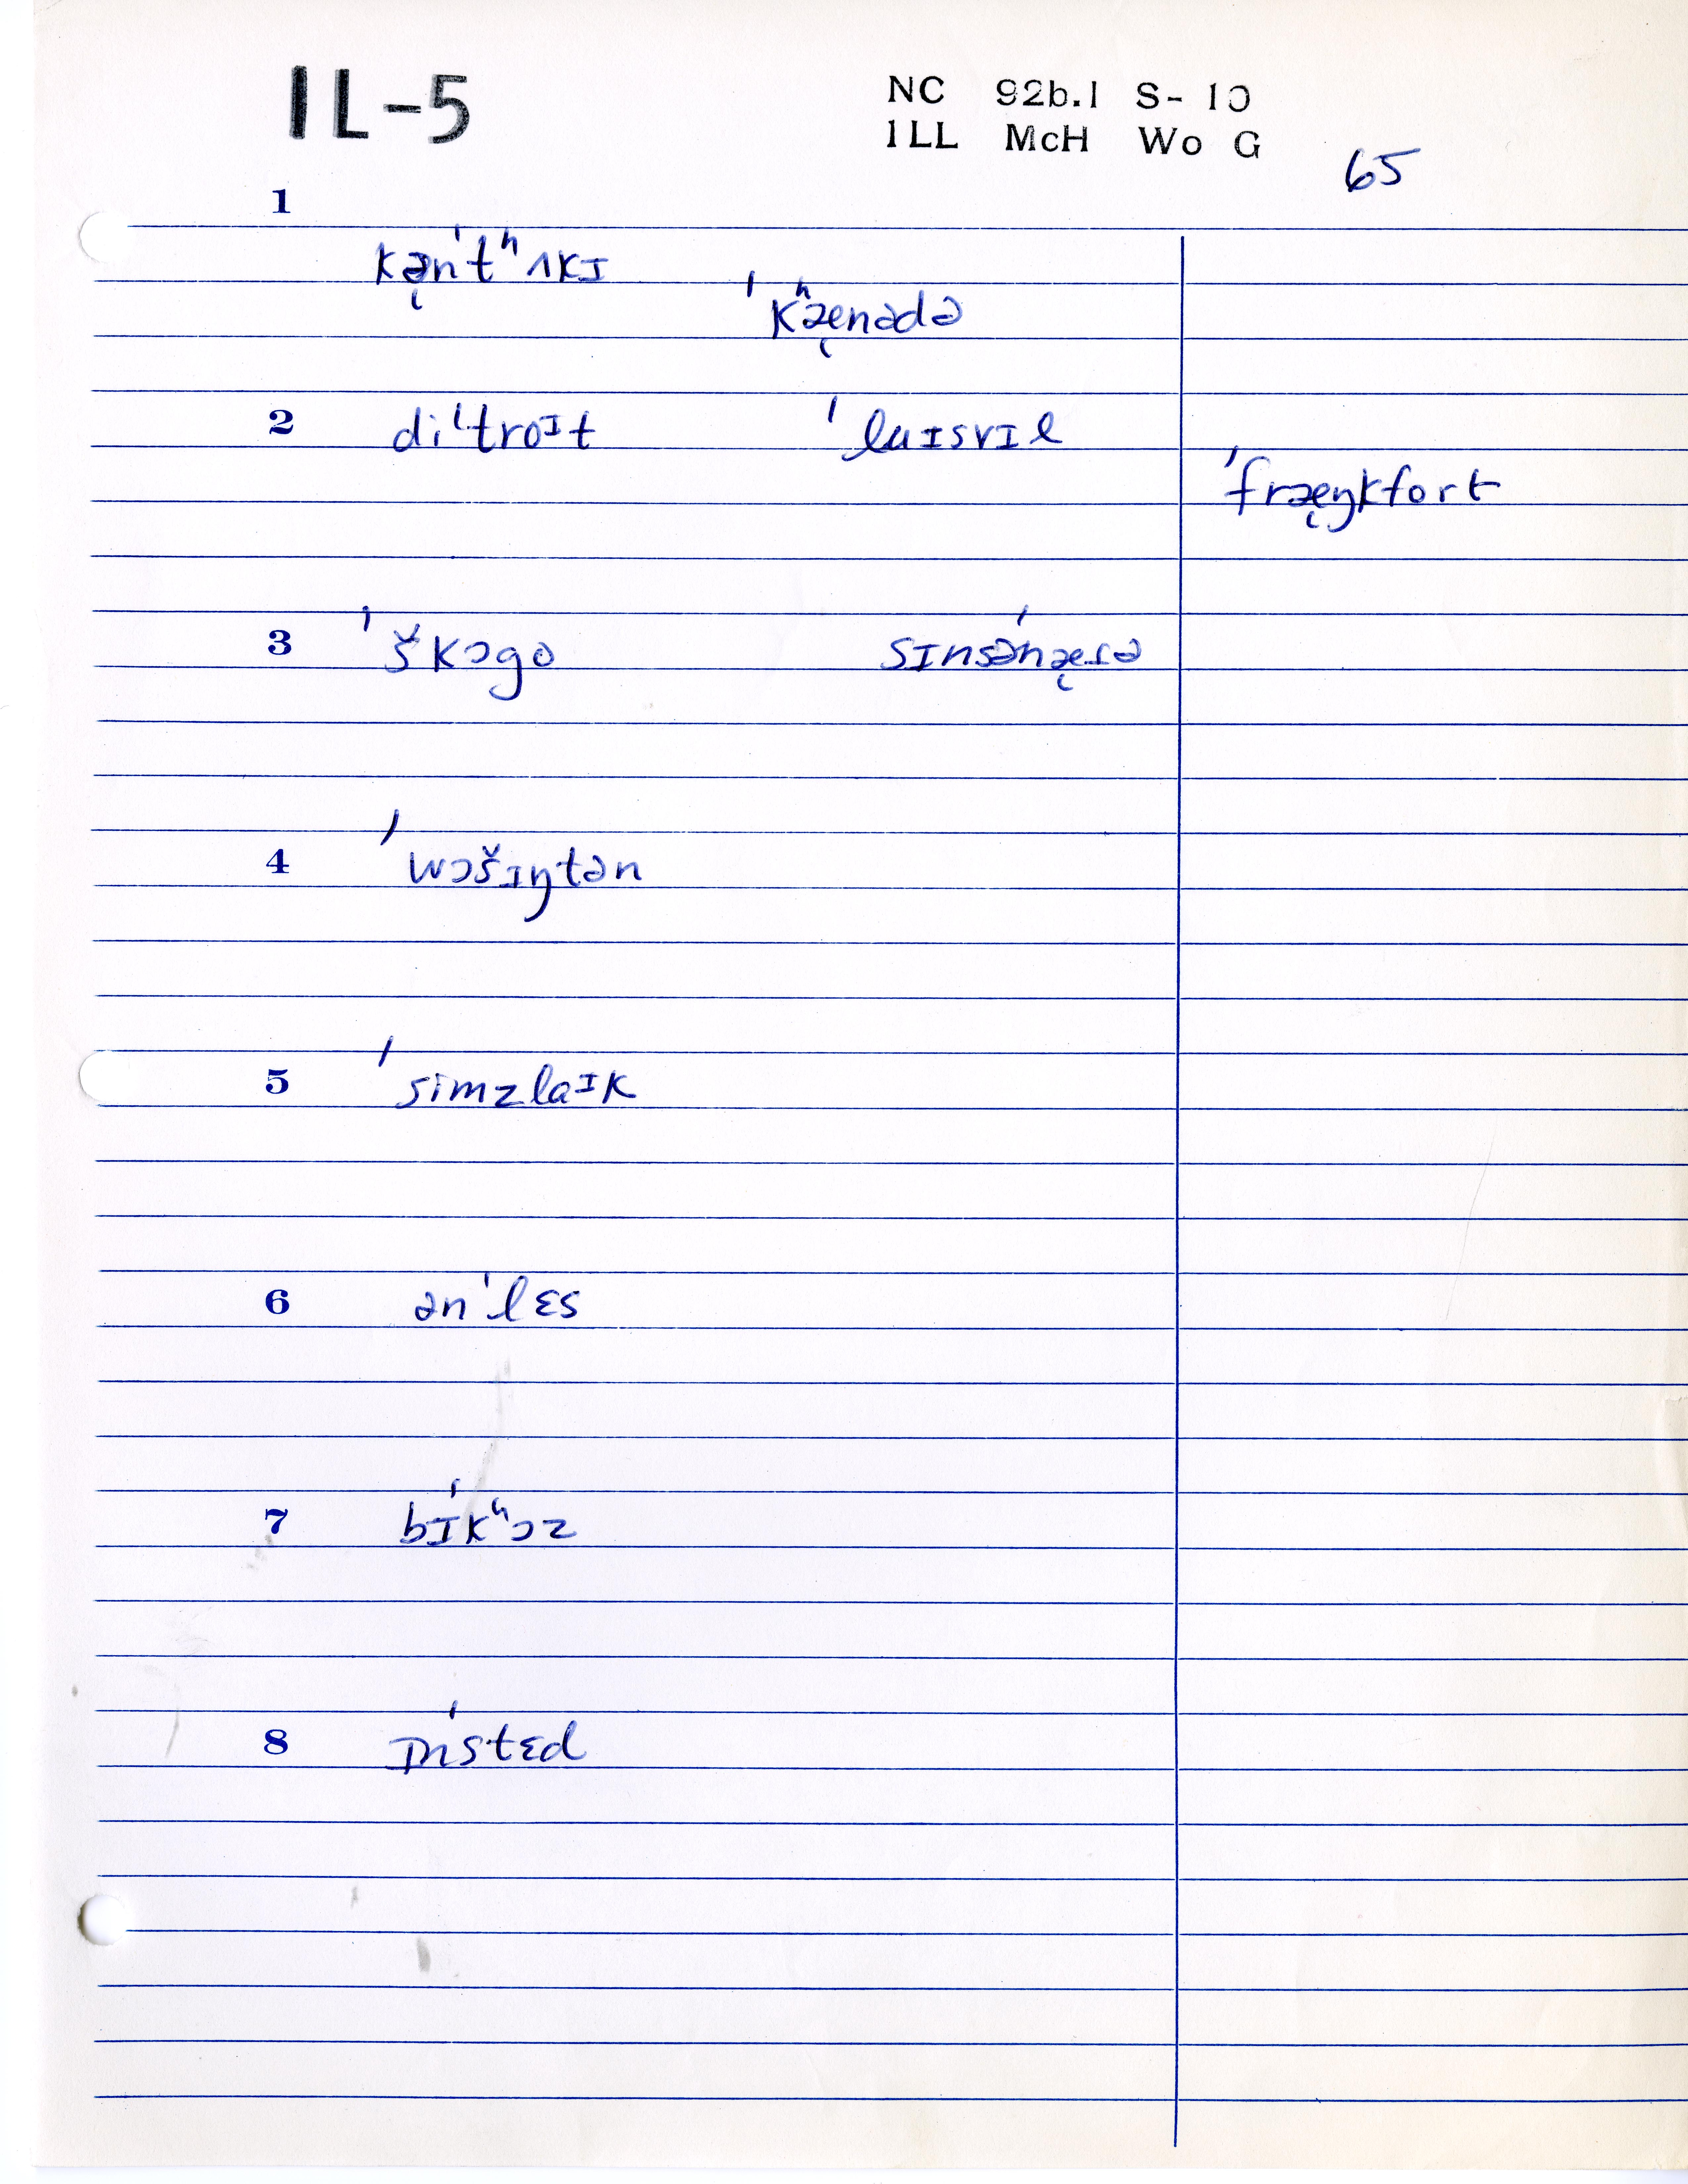 IL-5
NC 92b.1 S- 10
ILL McH Wo G
65
1
kə̨n'tʰʌkɪ
'kʰæ̨nədə
2 di'troɪt 'luɪsvɪl
'fræ̨ŋkfort
3 'škɔgo sɪnsə'næ̨tə
4 'wɔšɪŋtən
5 'simzlaɪk
6 ən'lɛs
7 bɪ'kʰɔz
8 ɪn'stɛd